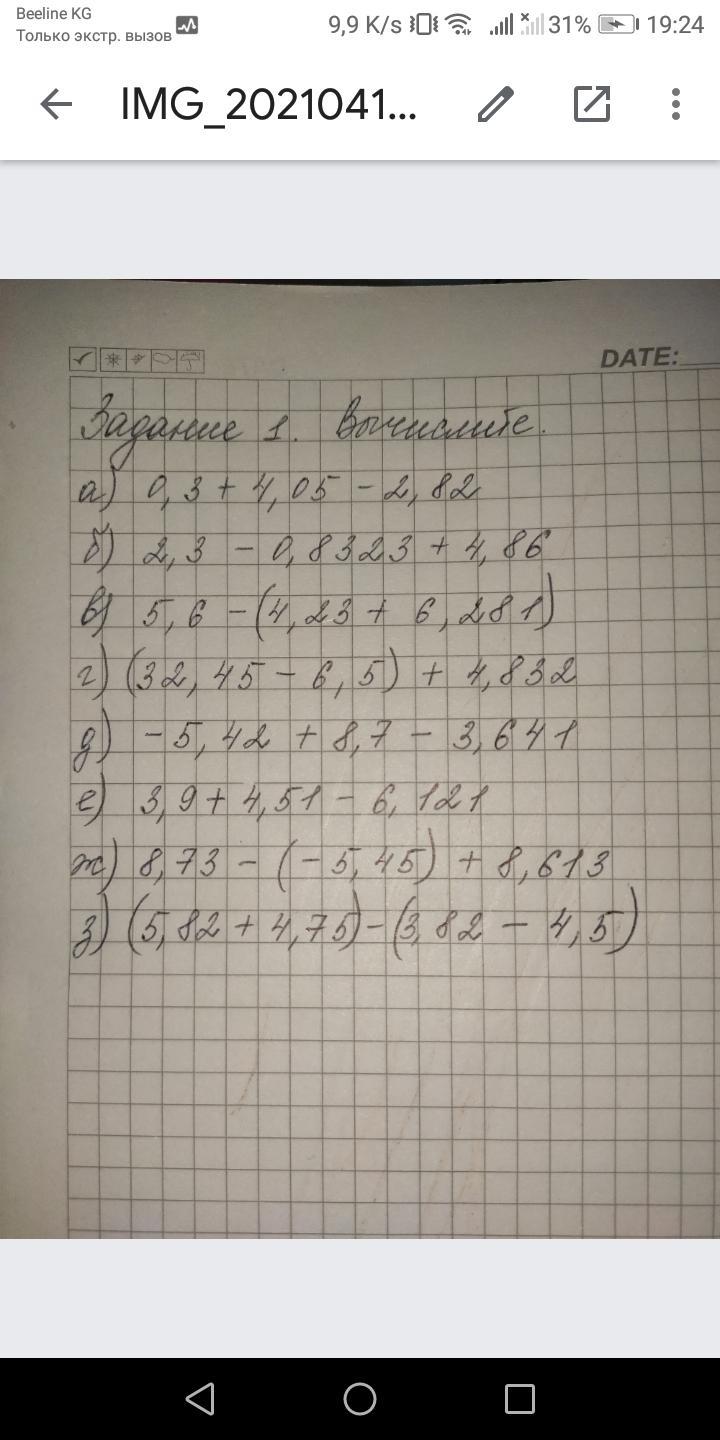 Beeline KG
Только экстр. вызов
9,9 K/s 31% 19:24
IMG_2021041...
DATE:
Задание 1. Вычислите.
а) 0,3 + 4,05 - 2,82
б) 2,3 - 0,8323 + 4,86
в) 5,6 - (4,23 + 6,281)
г) (32,45 - 6,5) + 4,832
д) -5,42 + 8,7 - 3,641
е) 3,9 + 4,51 - 6,121
ж) 8,73 - (-5,45) + 8,613
з) (5,82 + 4,75) - (3,82 - 4,5)